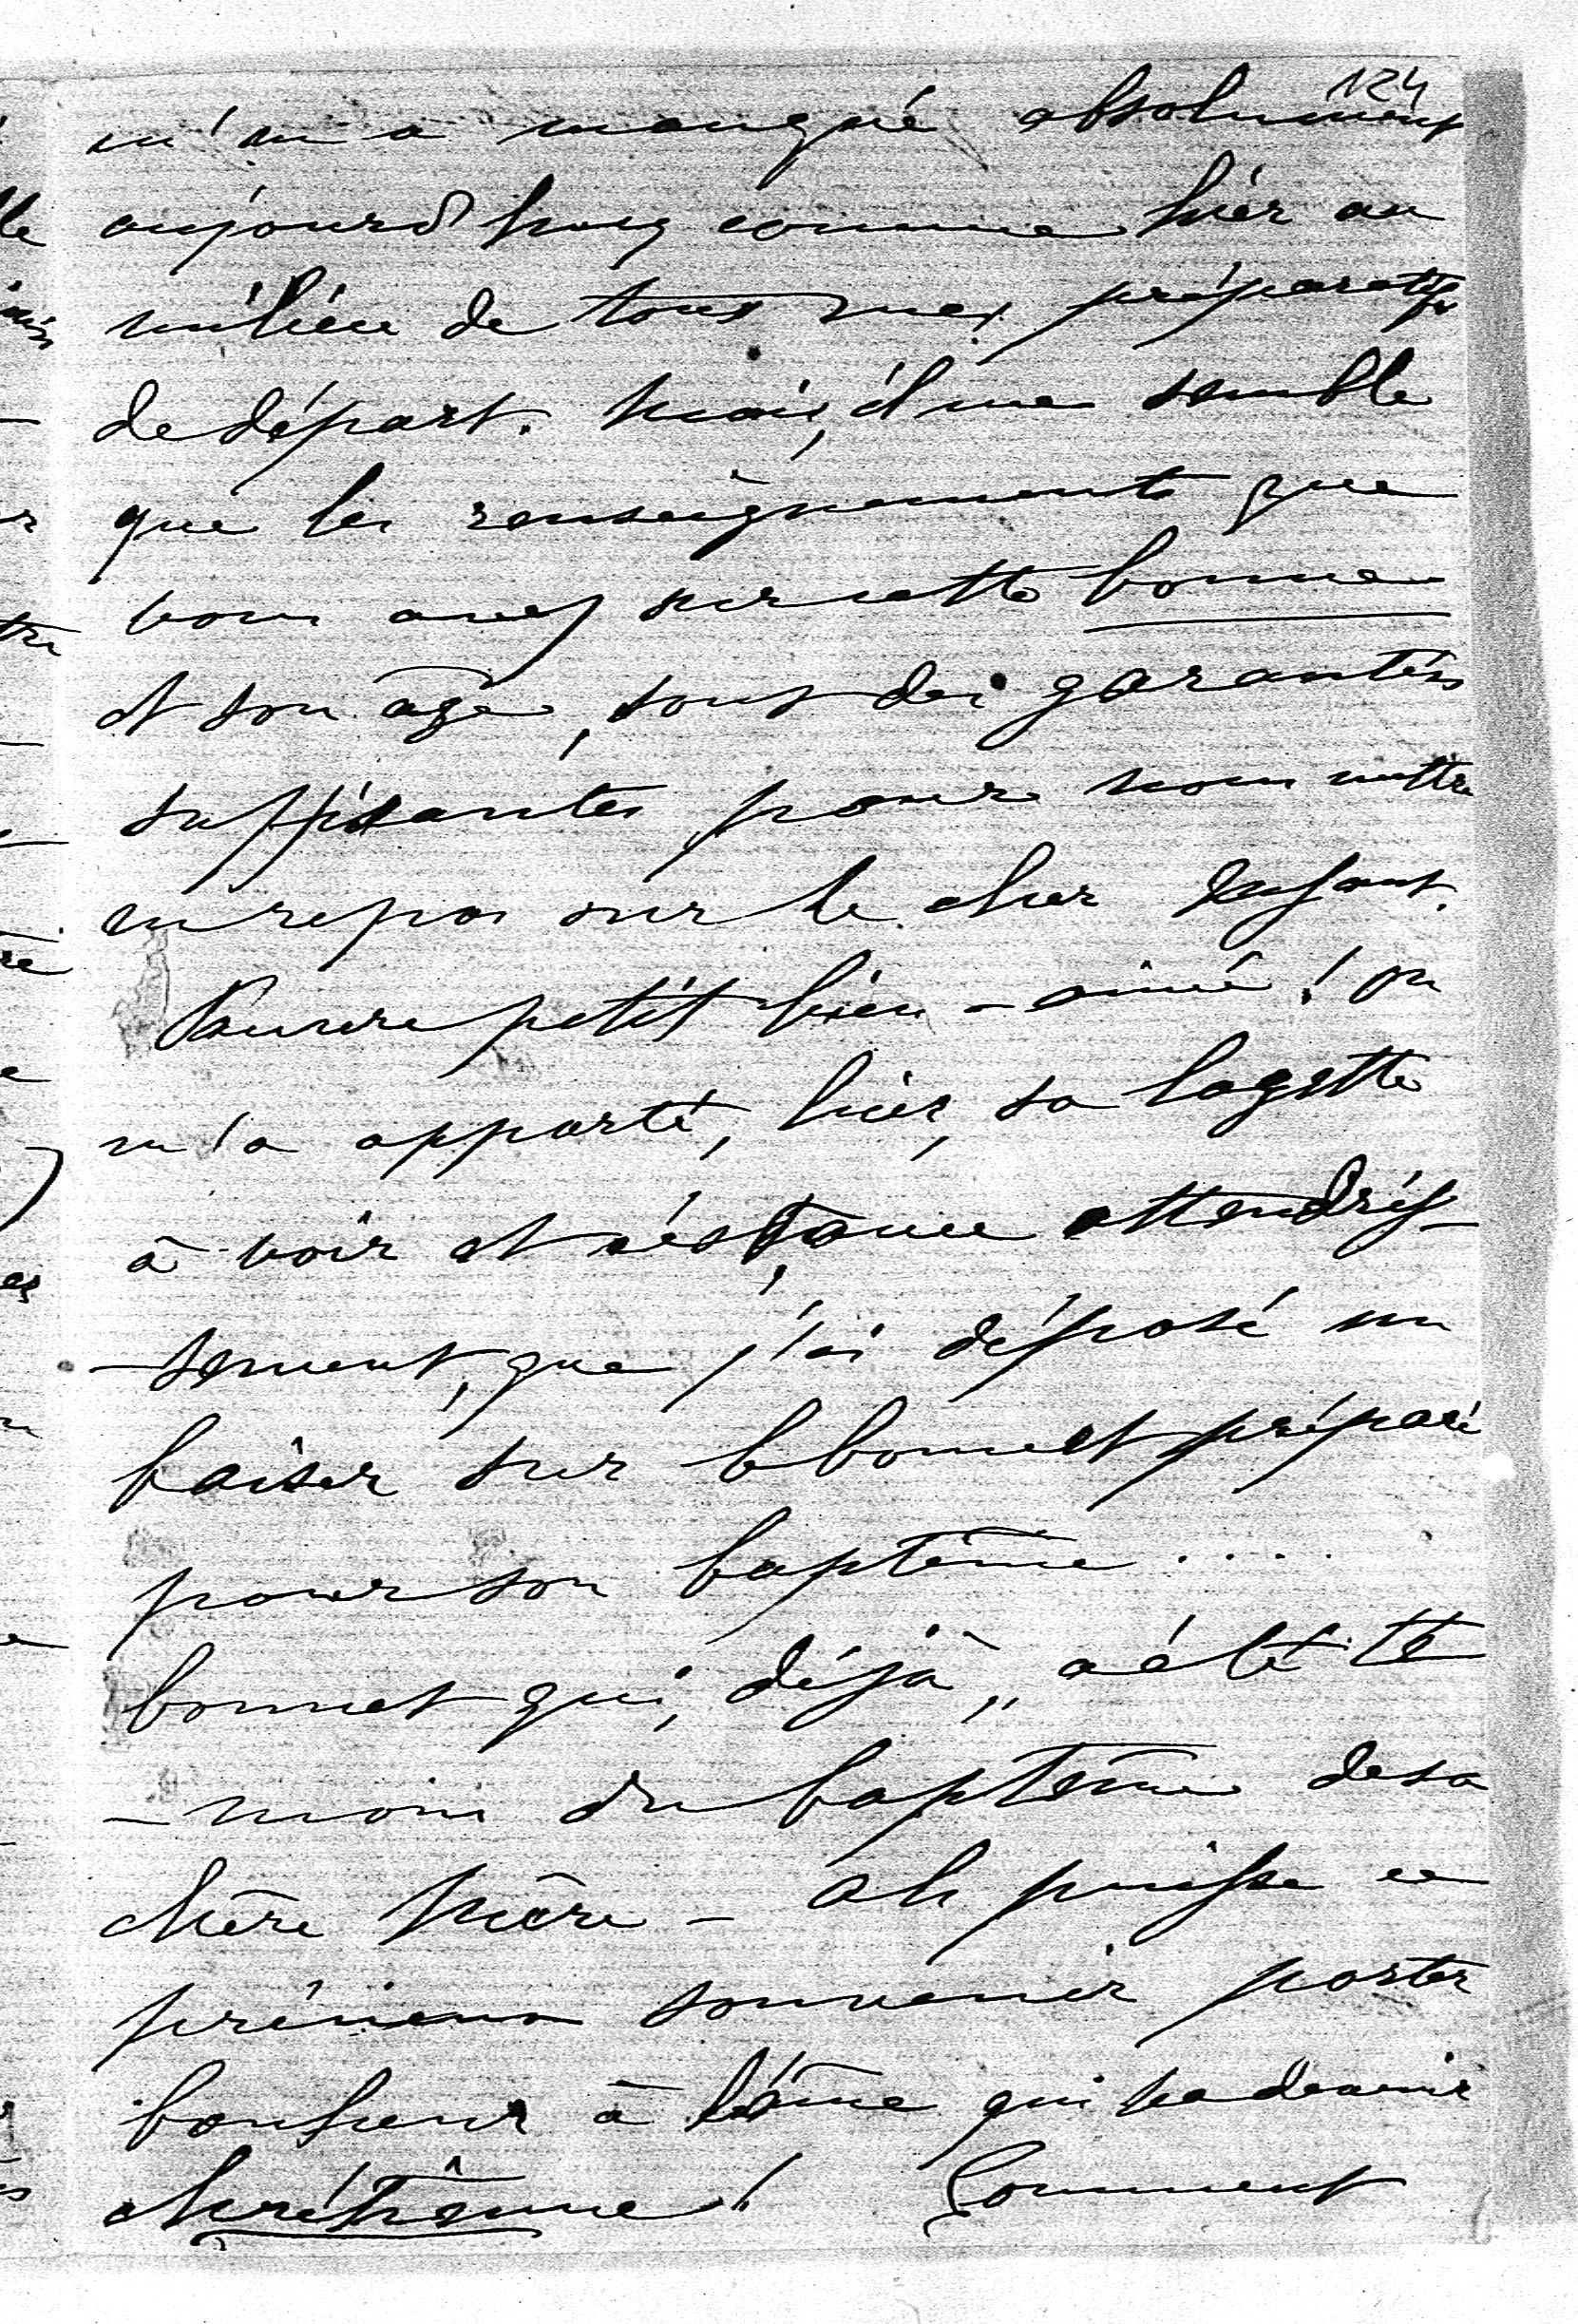 124
m'en a manqué absolument
aujourd'huy comme hier au
milieu de tous mes préparatifs
de départ. Mais, il me semble
que les renseignements que
vous avez sur cette bonne
et son âge, sont des garanties
suffisantes pour nous mettre
en repos sur le cher Enfant.
Pauvre petit bien-aimé ! on
m'a apporté, hier, sa layette
à voir et c'est avec attendris
-sement, que j'ai déposé un
baiser sur le bonnet préparé
pour son baptême ....
bonnet qui, déjà, a été té
-moin du baptême de sa
chère Mère - Ah puisse ce
précieux souvenir porter
bonheur à l'âme qui va devenir
chrétienne ! Comment